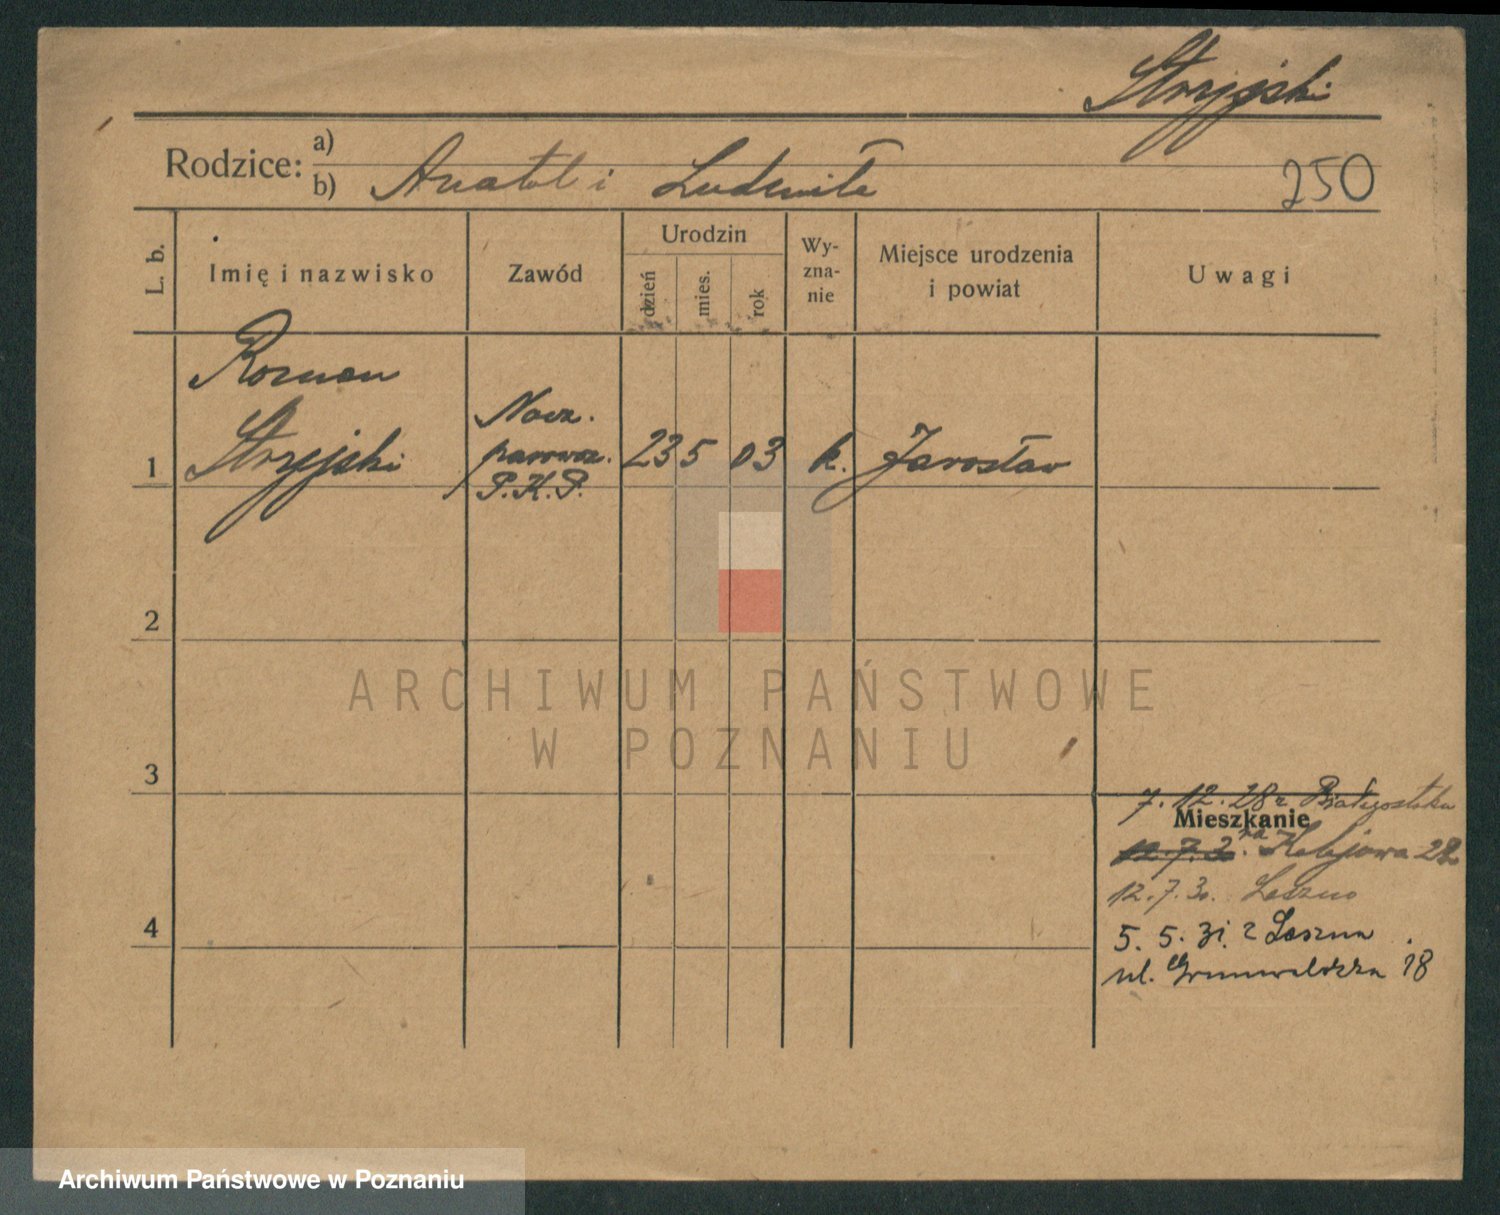 Stryjski
Rodzice: a)
b) Anatol i Ludmiła
250
L. b.
Imię i nazwisko
Zawód
Urodzin
dzień
mies.
rok
Wy-
zna-
nie
Miejsce urodzenia
i powiat
Uwagi
Roman
Stryjski
Nacz.
parowoz.
P.K.P.
1
23 5 03 k. Jarosław
2
ARCHIWUM PAŃSTWOWE
W POZNANIU
3
7. 12. 28 r. Białegostoku
Mieszkanie
12. 7. 3 na Kolejowa 22
12. 7. 30. Leszno
4
5. 5. 31. z Leszna
ul. Grunwaldzka 18
Archiwum Państwowe w Poznaniu